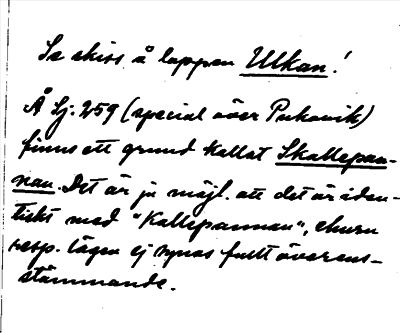 Se skiss å lappen Ulkan!
Å Sj: 259 (special över Pukavik)
finns ett grund kallat Skallepan-
nan. Det är ju möjl. att det är iden-
tiskt med "Kallepannan", ehuru
resp. lägen ej synas fullt överens-
stämmande.